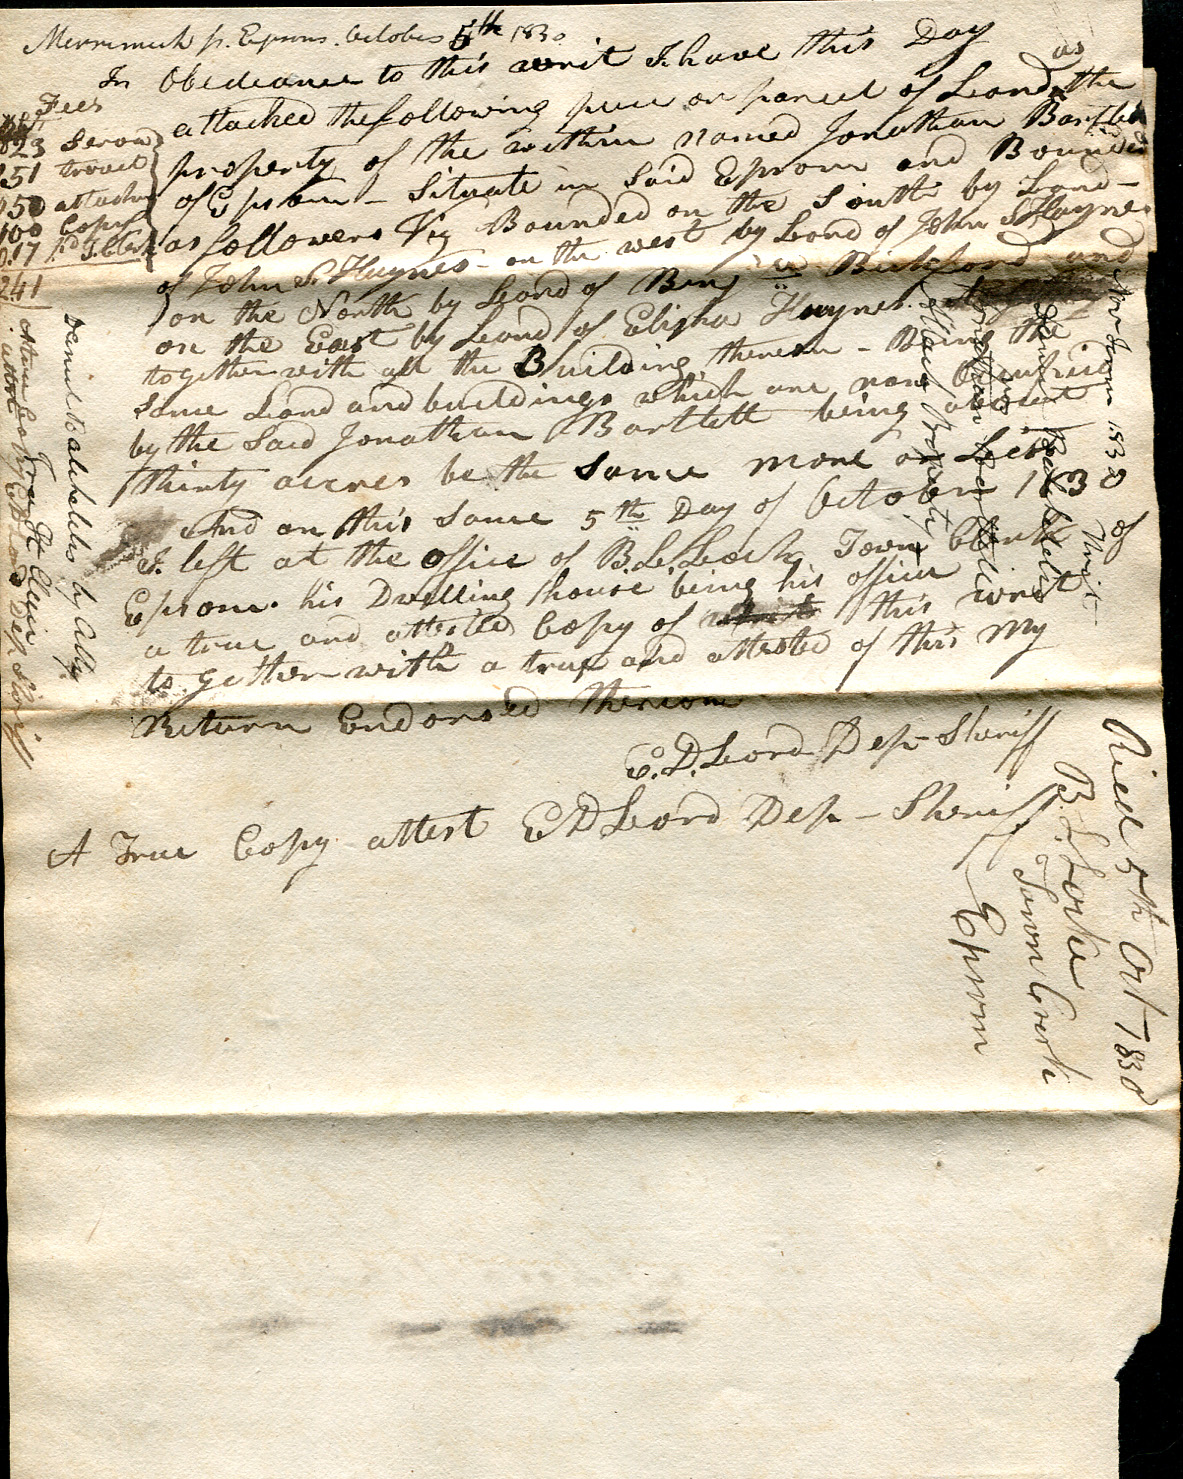 Merrimack ss. Epsom. October 5th 1830
In Obedience to this writ I have this Day
attached the following peice or parcel of Land as the
property of the within named Jonathan Bartlett
of Epsom - Situate in Said Epsom and Bounded
as followers Viz Bounded on the South by Land
of John S. Haynes - on the west by Land of John S Haynes
on the North by Land of Benj Bickford and
on the East by Land of Elisha Haynes
together with all the Building thereon - Being the
same Land and buildings which are now Occupied
by the Said Jonathan Bartlett being about
thirty acres be the same more or Less
And on this same 5th Day of October 1830
I. left at the office of B. L. Locke Town Clerk
Epsom. his Dwelling house being his office
a true and attested Copy of this writ
to gether with a true and attested of this My
Return Endorsed thereon
E. D. Lord Dep - Sheriff
A True Copy attest E D Lord Dep - Sheriff
Fees
823 Serv
51 Travel
50 attachm
100 Copys
0.17 pd T. Clerk
241
Daniel Batchelder by Atty.
A true Copy
attest
E D Lord Dep Sheriff
Term 1830
Writ
of
Jonathan Bartlett
property
Recd 5th Oct 1830
B. L. Locke
Town Clerk
Epsom